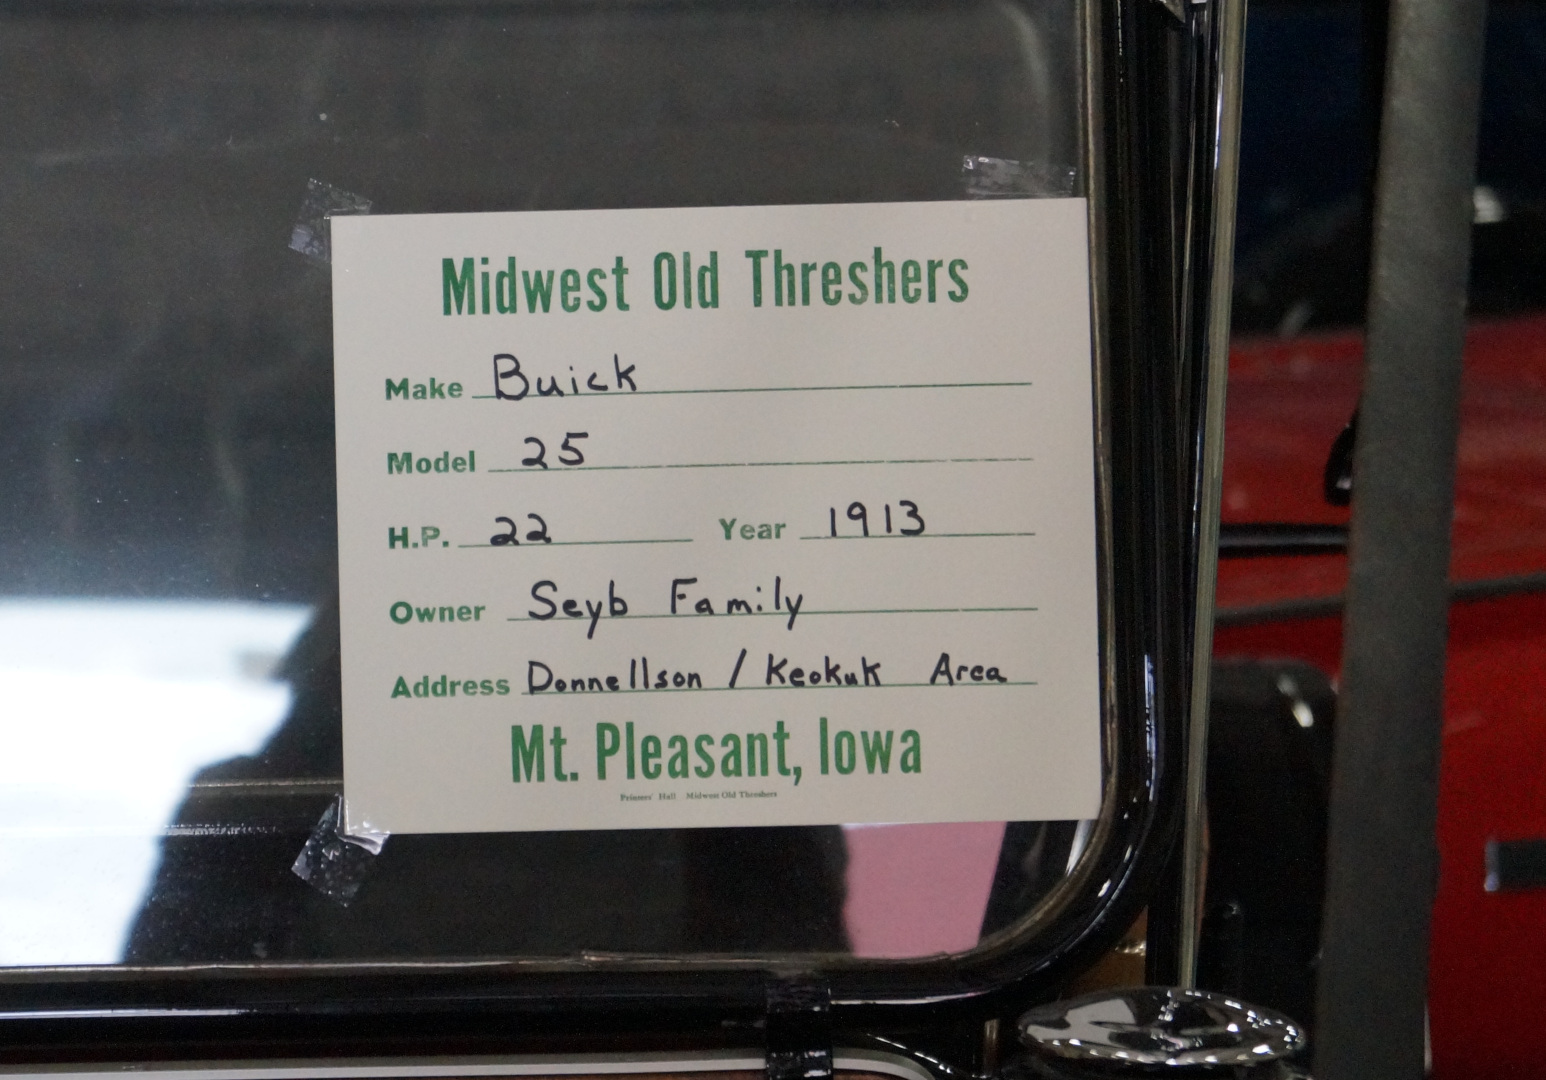 Midwest Old Threshers
Make Buick
Model 25
H.P. 22 Year 1913
Owner Seyb Family
Address Donnellson / Keokuk Area
Mt. Pleasant, Iowa
Printers' Hall Midwest Old Threshers